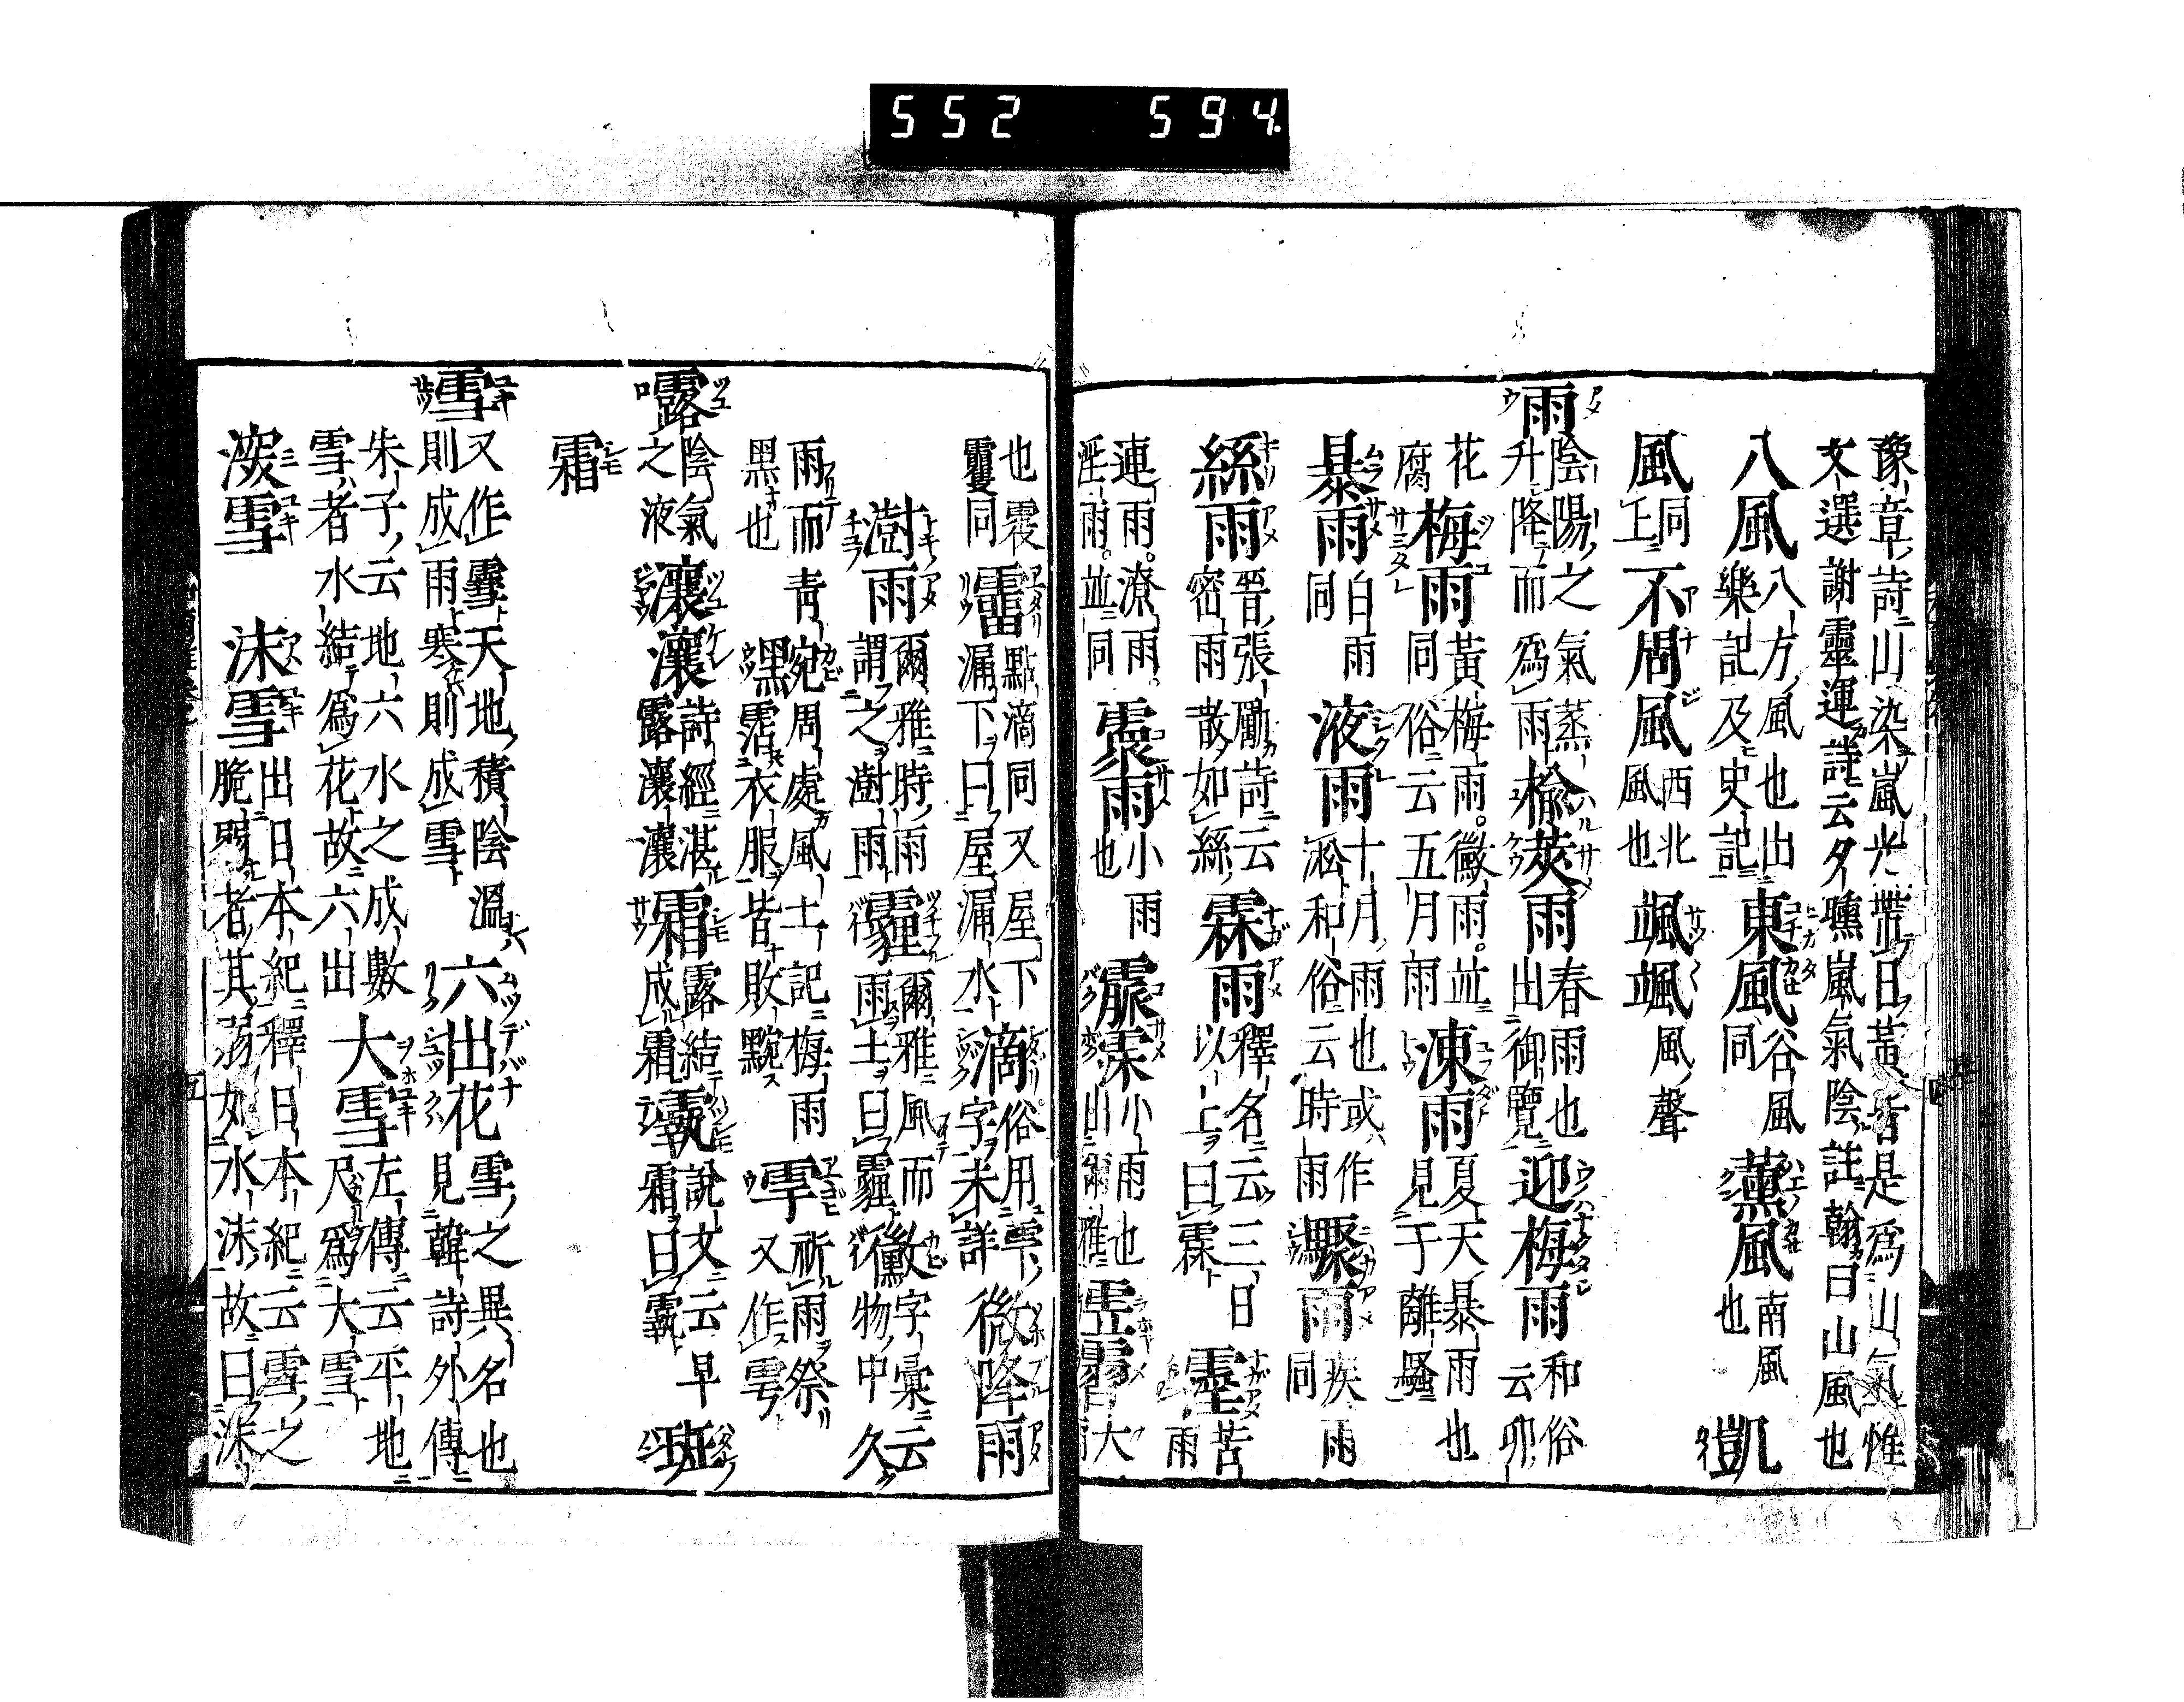 552 594
豫章詩山染嵐光帯日黄皆是為山氣惟
文選謝靈運詩云夕曛嵐氣陰註翰曰山風也
八風八方風也出樂記及史記 東風谷風同 薫風南風也 凱
風同上 不周風西北風也 颯颯風聲
雨陰陽之氣蒸升降而為雨 楡莢雨春雨也出御覽 迎梅雨和俗云卯
花腐 梅雨黄梅雨。黴雨。並同俗云五月雨 凍雨夏天暴雨也見于離騒
暴雨白雨同 液雨十月雨也或作淞和俗云時雨 驟雨疾雨同
絲雨晉張勵詩云密雨散如絲 霖雨釋名云三日以上曰霖 霪苦雨
連雨。潦雨。淫雨。並同 雨小雨也 小雨也 大
也 同 霤點滴同又屋下漏下曰屋漏水 滴俗用雫字未詳 微降雨
澍雨爾雅時雨謂之澍雨 霾爾雅風而雨土曰霾 黴字彙云物中久
雨而青黒也 黕周處風土記梅雨沾衣服皆敗黦 雩祈雨祭又作
露陰氣之液 瀼瀼詩經湛露瀼瀼 霜露結成霜 說文云早霜曰 班
霜
雪又作䨮天地積陰温則成雨寒則成雪 六出花雪之異名也見韓詩外傳
朱子云地六水之成數雪者水結為花故六出 大雪左傳云平地尺為大雪
雪 沫雪出日本紀釋日本紀云雪之脆弱者其弱如水沫故曰沫